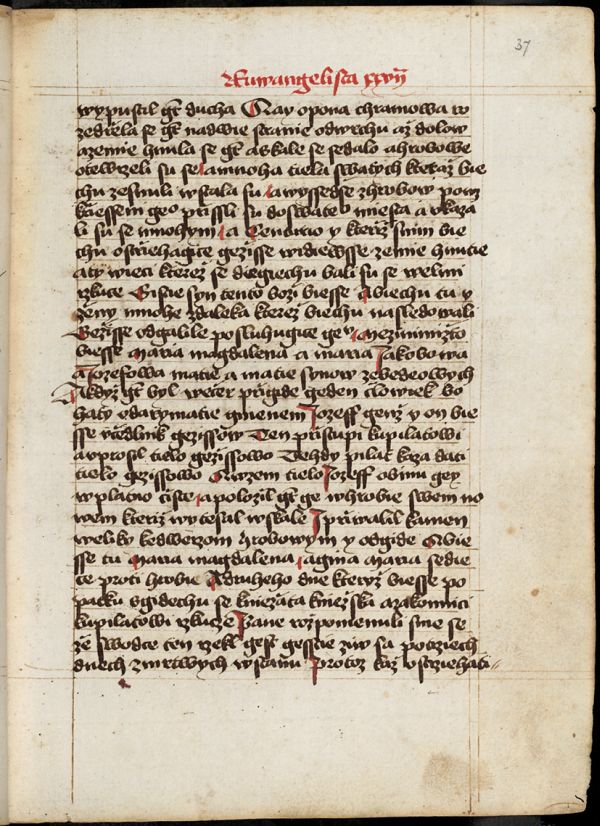 37
Euwangelista xxvij
wypustil gt ducha A tay opona chramowa ro
zedrzela se gt nadwie stranie odwrchu až dolow
azemie hnula se gt askale se sedalo ahrobowe
otewrzeli su se a mnoha tiela swatych kteraž bie
chu zesnuli wstala su a wyssedse zhrobow potz
krziessem geo přissli su doswateo miesta a vkaza
li su se mnohym a Centurio y kteriž snim bie
chu ostriehagice gezisse widiewsse zemie hnutie
aty wieci kterez se diegiechu bali su se welmi
rzkuce Gistie syn tento boži biesse A biechu tu y
ženy mnohe zdaleka kterez biechu nasledowali
Gežisse odgalile posluhugice geo Mezinimižto
biesse Maria magdalena a maria Jakobowa
a Jozefowa matie a matie synow zebedeowych
A kdyz gt byl wečer přigide geden clowiek bo
haty odarymatie gmenem Jozeff genž y on bie
sse včedlnik gezissow Ten přistupi kupilatowi
a vprosil tielo gezissowo Tehdy pilat kaza dati
tielo gezissowo A wzem tielo Jozeff obinu gey
wplatno čiste a položil gt ge whrobie swem no
wem kteriž wytesal wskale J přiwalil kamen
weliky kedwerzom hrobowym y odgide A bie
sse tu Maria magdalena a gina Maria sedie
ce proti hrobu A druheho dne kteryž biesse po
patku sgidechu se kniežata kniežska azakonnici
kupilatowi rzkuce Pane rozpomenuli sme se
že swodce ten rzekl gest gesstie žiw sa potrziech
dnech zmrtwych wstanu Protož kaž ostriehati